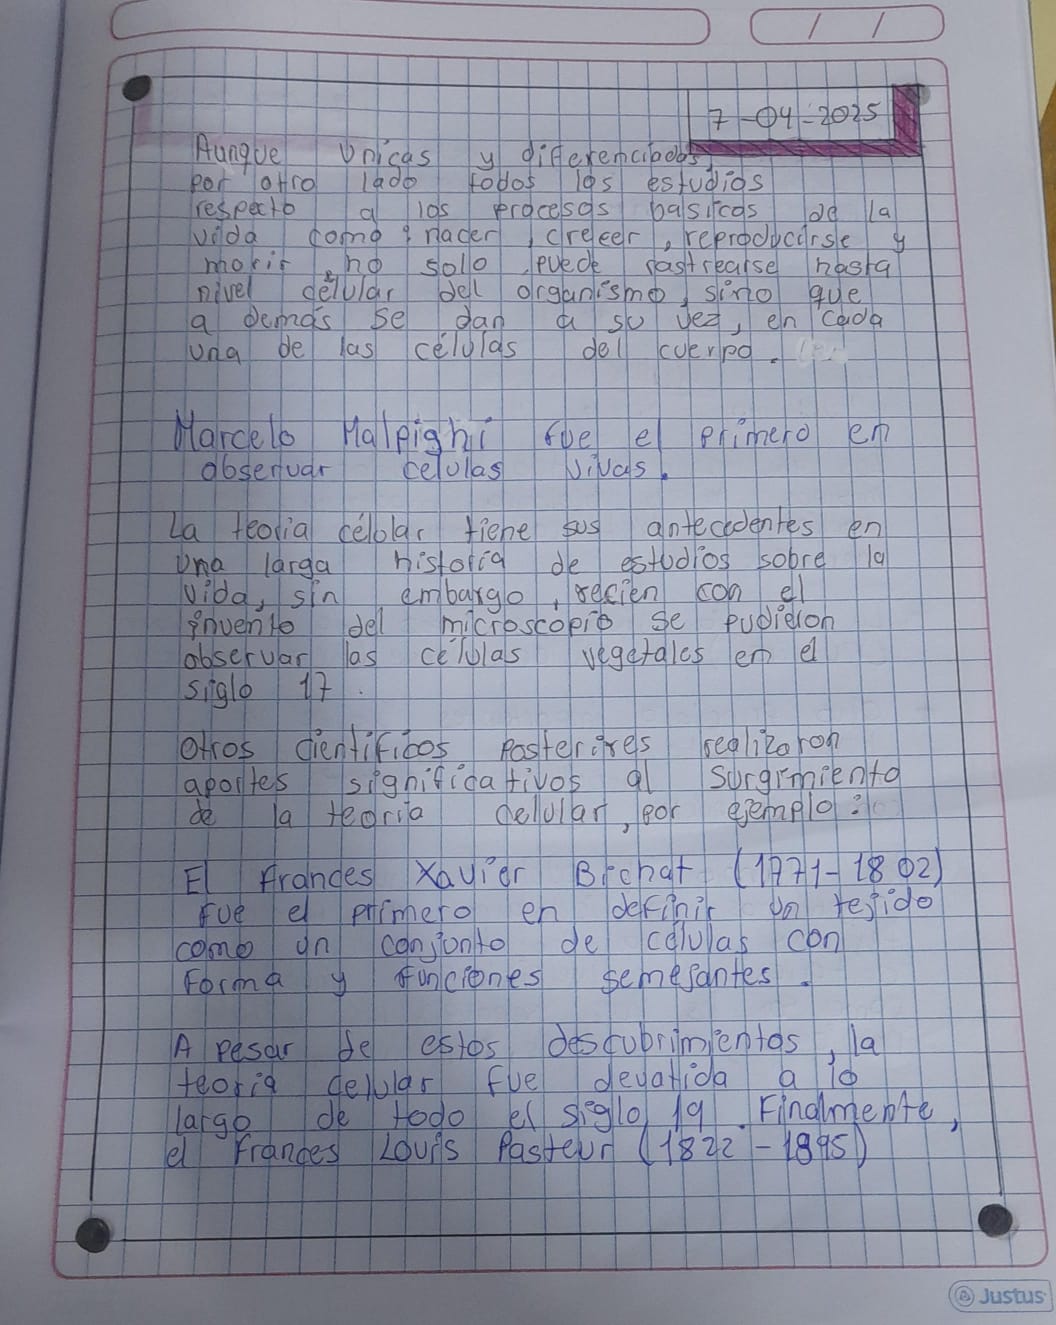 / /
7-04-2025
Aunque unicas y diferenciadas,
por otro lado todos los estudios
respecto a los procesos basicos de la
vida como: nacer, creecer, reproducirse y
morir, no solo puede rastrearse hasta
nivel célular del organismo, sino que
a demás se dan a su vez, en cada
una de las células del cuerpo.
Marcelo Malpighi fue el primero en
observar celulas vivas.
La teoria célular tiene sus antecedentes en
una larga historia de estudios sobre la
vida, sin embargo, recien con el
invento del microscopio se pudieron
observar las células vegetales en el
siglo 17.
Otros cientificos posteriores realizaron
aportes significativos al surgimiento
de la teoria celular, por ejemplo:
El frances Xavier Bichat (1771-1802)
fue el primero en definir un tejido
como un conjunto de células con
forma y funciones semejantes.
A pesar de estos descubrimientos, la
teoria celular fue devatida a lo
largo de todo el siglo 19. Finalmente,
el frances Louis Pasteur (1822-1895)
Justus